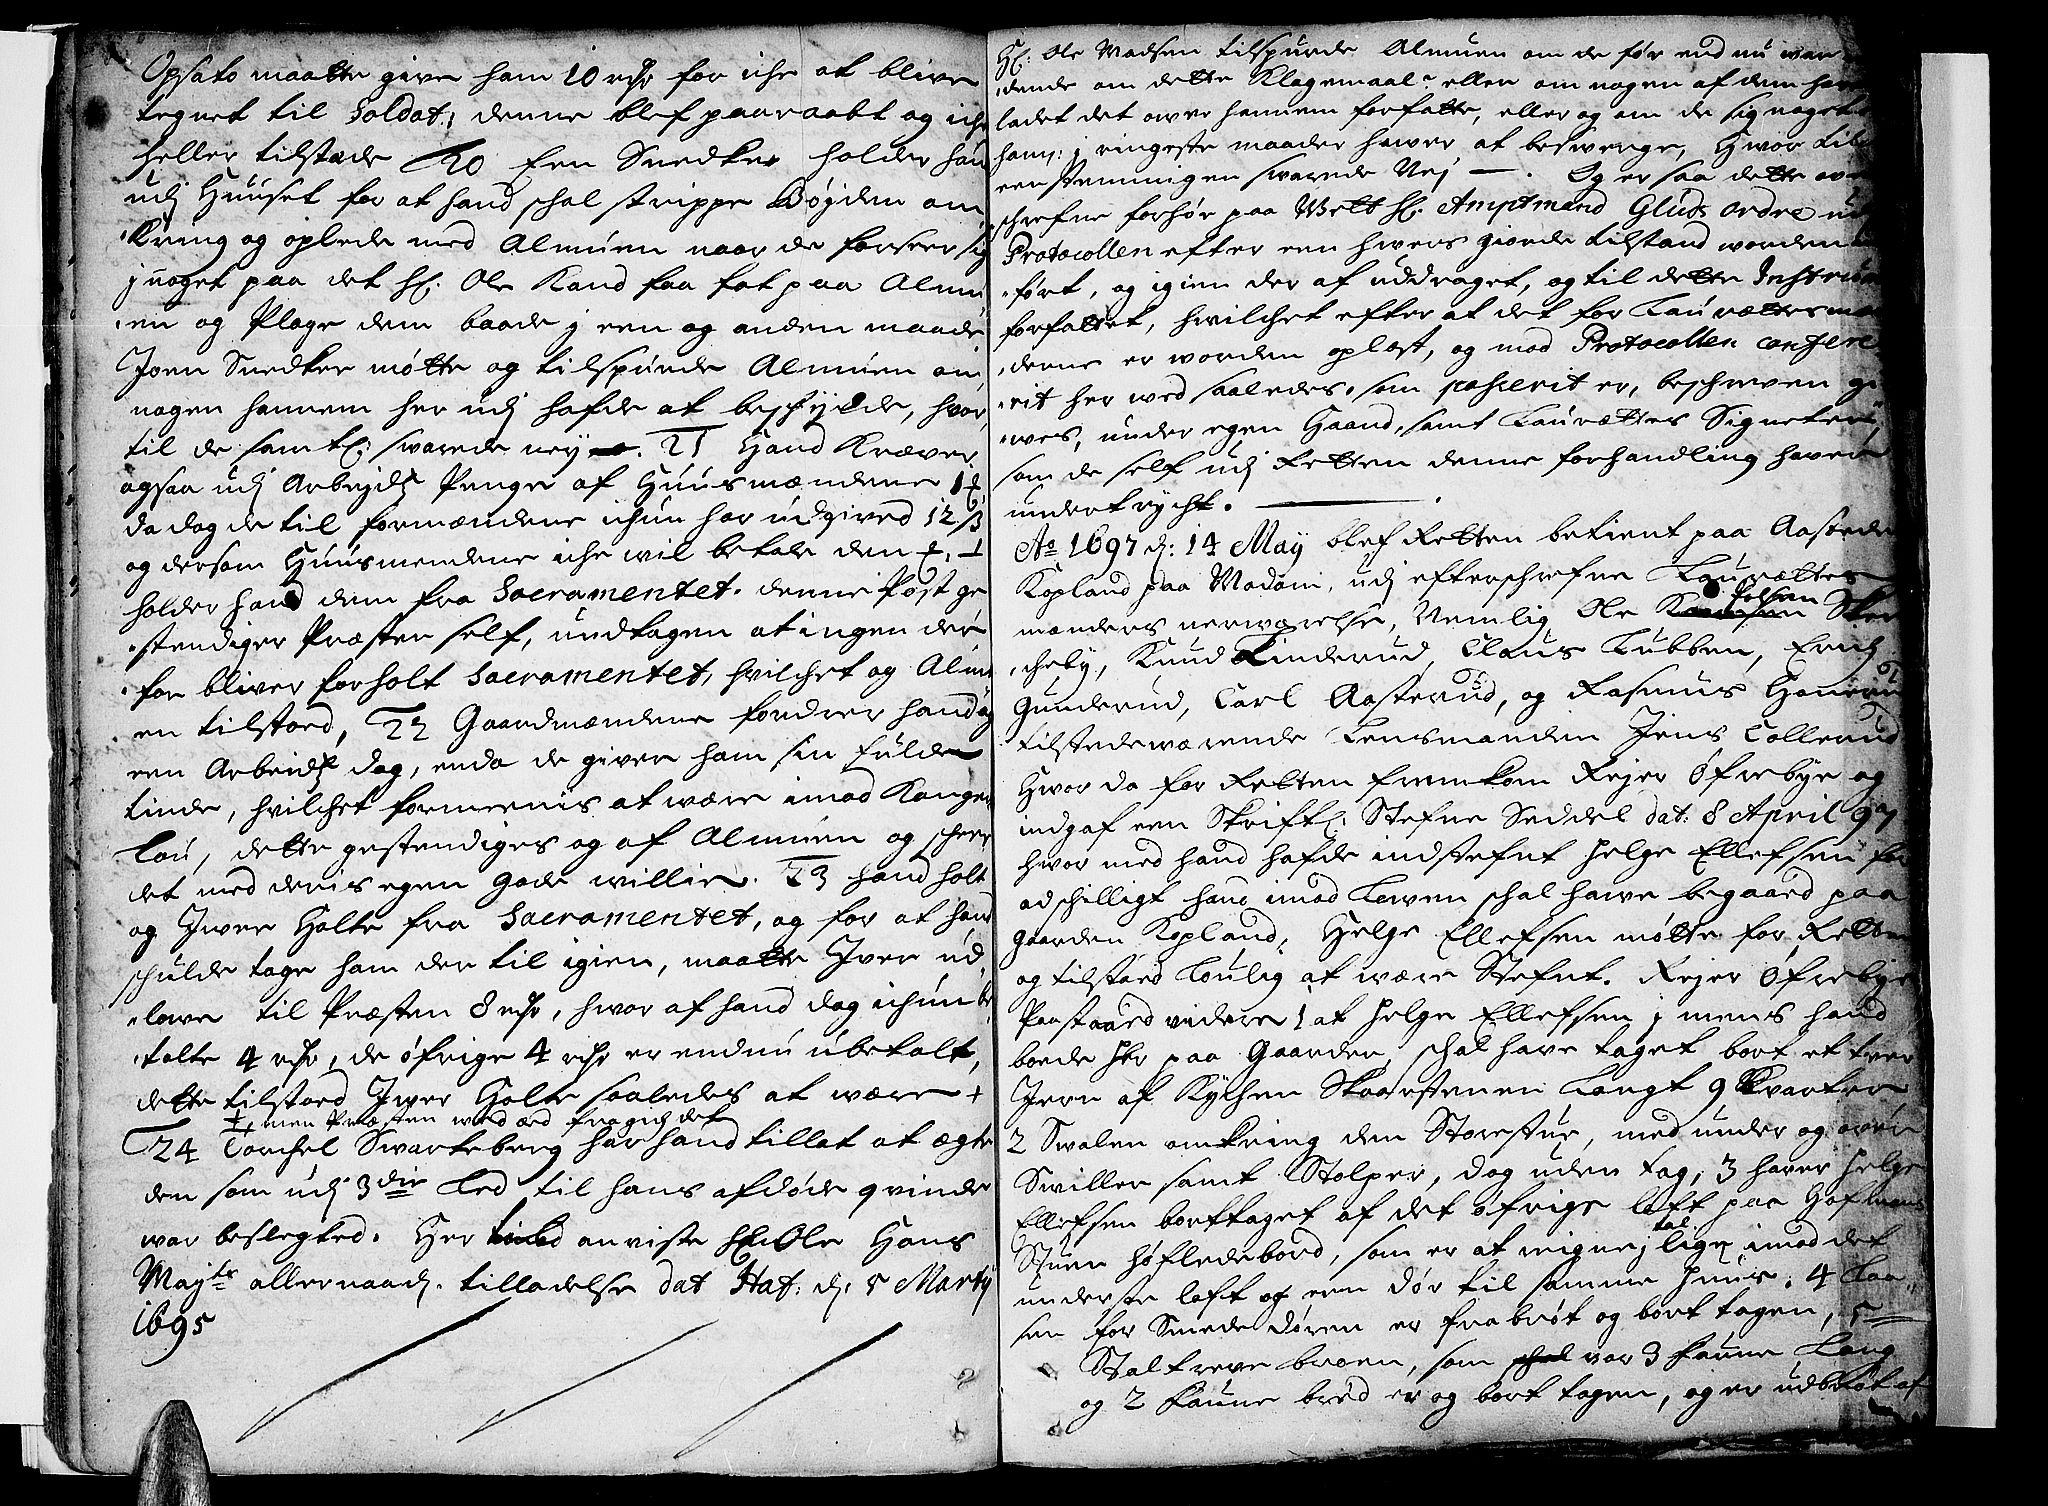 Opsato maatte give ham 10 rdr for iche at blive
tegnet til Soldat; denne blef paaraabt og iche
heller tilstæde 20 Een Snedker holder hand
udj Huuset for at hand schal strippe Bøjden om
kring og oplede med Almuen naar de forseer sig
j noget paa det hr. Ole kand faa fat paa Almu
en og Plage dem baade j een og anden maade
Joen Snedker møtte og tilspurde Almuen om
nogen hannem her udj hafde at beschylde, hvor
til de samtl. swarede nej. 21 Hand Kræver
ogsaa udj Arbejds Penge af Huusmændene 1
da dog de til formændene ichun har udgived 12 s
og dersom Huusmendene iche wil betale den
holder hand dem fra Sacramentet. denne Post ge
stendiger Præsten self, undtagen at ingen der
for bliver forholt Sacramentet, hvilchet og Almu
en tilstoed, 22 Gaardmændene fordrer hand og
een Arbeids dag, enda de giver ham sin fulde
tinde, hvilchet formeenis at være imod Kongens
Lou, dette gestendiges og af Almuen og scheer
det med deris egen gode willie. 23 hand holt
og Iwer Holte fra Sacramentet, og for at hand
schulde tage ham der til igien, maatte Iver ud
lowe til Præsten 8 rdr, hwor af hand dog ichun be
talte 4 rdr, de øfrige 4 rdr er endnu ubetalt,
dette tilstoed Iwer Holte saaledes at wære +
+, men Præsten wed æd fragich det
24 Torchel Swarteberg har hand tillat at ægte
den som udj 3die Led til hans afdøde qvinde
war beslegted. Her anviste hr Ole Hans
Mayts allernaad. tilladelse dat Haf: d. 5 Martij
1695
Hr. Ole Madsen tilspurde Almuen om de før end nu war
dende om dette Klagemaal, eller om nogen af dem hafde
ladet det over hannem forfatte, eller og om de sig noget
ham j ringeste maader hawer at beswerge, Hwor til
eenstemmigen swarede Nej —. Og er saa dette ow
schrefne forhør paa Welb hr. Amptmand Gluds ordre ud
Protocollen efter een hwers giorde tilstand worden
ført, og igien der af uddraget, og til dette Instrum
forfattet, hvilchet efter at det for Laurættesmæ
dene er worden oplæst, og mod Protocollen confere
rit her wed saaledes som passerit er, beschreven gi
wes, under egen Haand, samt Laurættes Signeter
som de self udj Retten denne forhandling hawer
undertrycht.
Ao 1697 d: 14 May blef Retten betient paa Aastæde
Kopland paa Modum, udj efterschrefne Laurættes
mænders nerwærelse, Nemlig Ole Jolsen
cheby, Knud Linderud, Claus Lubben, Erich
Gunderud, Carl Aasterud, og Rasmus Hanerud
tilstedewærende Lensmanden Jens Tollerud
Hwor da for Retten fremkom Rejer Øfrebye og
indgaf een Skriftl. Stefne Seddel dat: 8 April 97
hwor med hand hafde indstefnt Helge Ellefsen for
adschilligt hand imod Lowen schal hawe begaaed paa
Gaarden Kopland, Helge Ellefsen møtte for Retten
og tilstoed Loulig at wære Stefnt. Rejer Øfrebye
Paastaaed videre 1 at Helge Ellefsen j mens hand
boede her paa Gaarden, schal have taget bort et tver
Jern af Kychen Skorstenen Langt 9 Kvarter
2 Swalen omkring den Storestue, med under og over
Swiller samt Stolper, dog uden tag, 3 haver Helge
Ellefsen borttaget af det øfrige loft paa Hofmans
Stuen høfledebord, som er at reigne j tal lige imod det
underste loft og een dør til samme Huus. 4 Laa
sen for Smededøren er frabrøt og bort tagen, 5
Staltreve broen, som war 3 faune Lang
og 2 faune bred er og bort tagen, og er udbrøt af